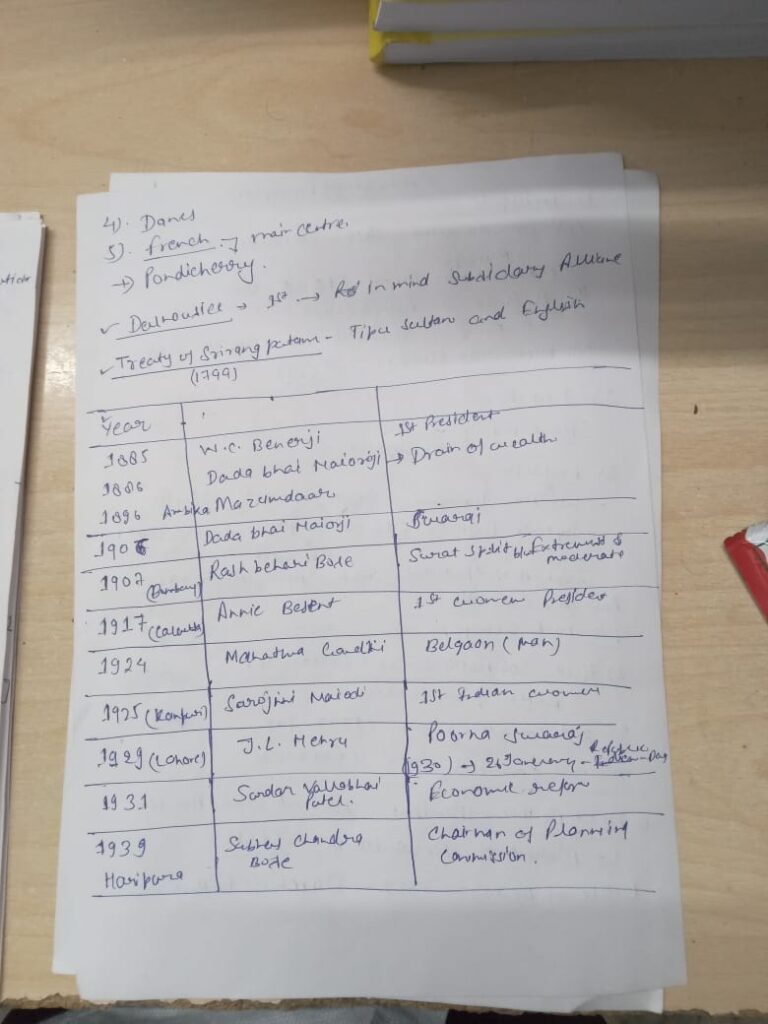 4). Danes
5). French → main centre.
→ Pondicherry.
✓ Dalhousie → 1st → In mind Subsidary Alliane
✓ Treaty of Srirangpatam - Tipu sultan and English
(1799)
Year
1885 W.C. Benerji 1st President
1886 Dada bhai Naioroji → Drain of wealth
1896 Ambika Mazumdaar
1906 Dada bhai Naiorji Swaraj
1907 Rash behari Bose Surat split b/w Extremist & moderate
1917 (Calcutta) Annie Besent 1st women President
1924 Mahatma Gandhi Belgaon (Man)
1925 (Kanpur) Sarojini Naiodi 1st Indian women
1929 (Lahore) J.L. Nehru Poorna Swaraj
(1930) → 26 January - Republic Day
1931 Sardar Vallabhai Patel. Economic reform
1939 Subhas Chandra Chairman of Planning
Haripura Bose Commission.